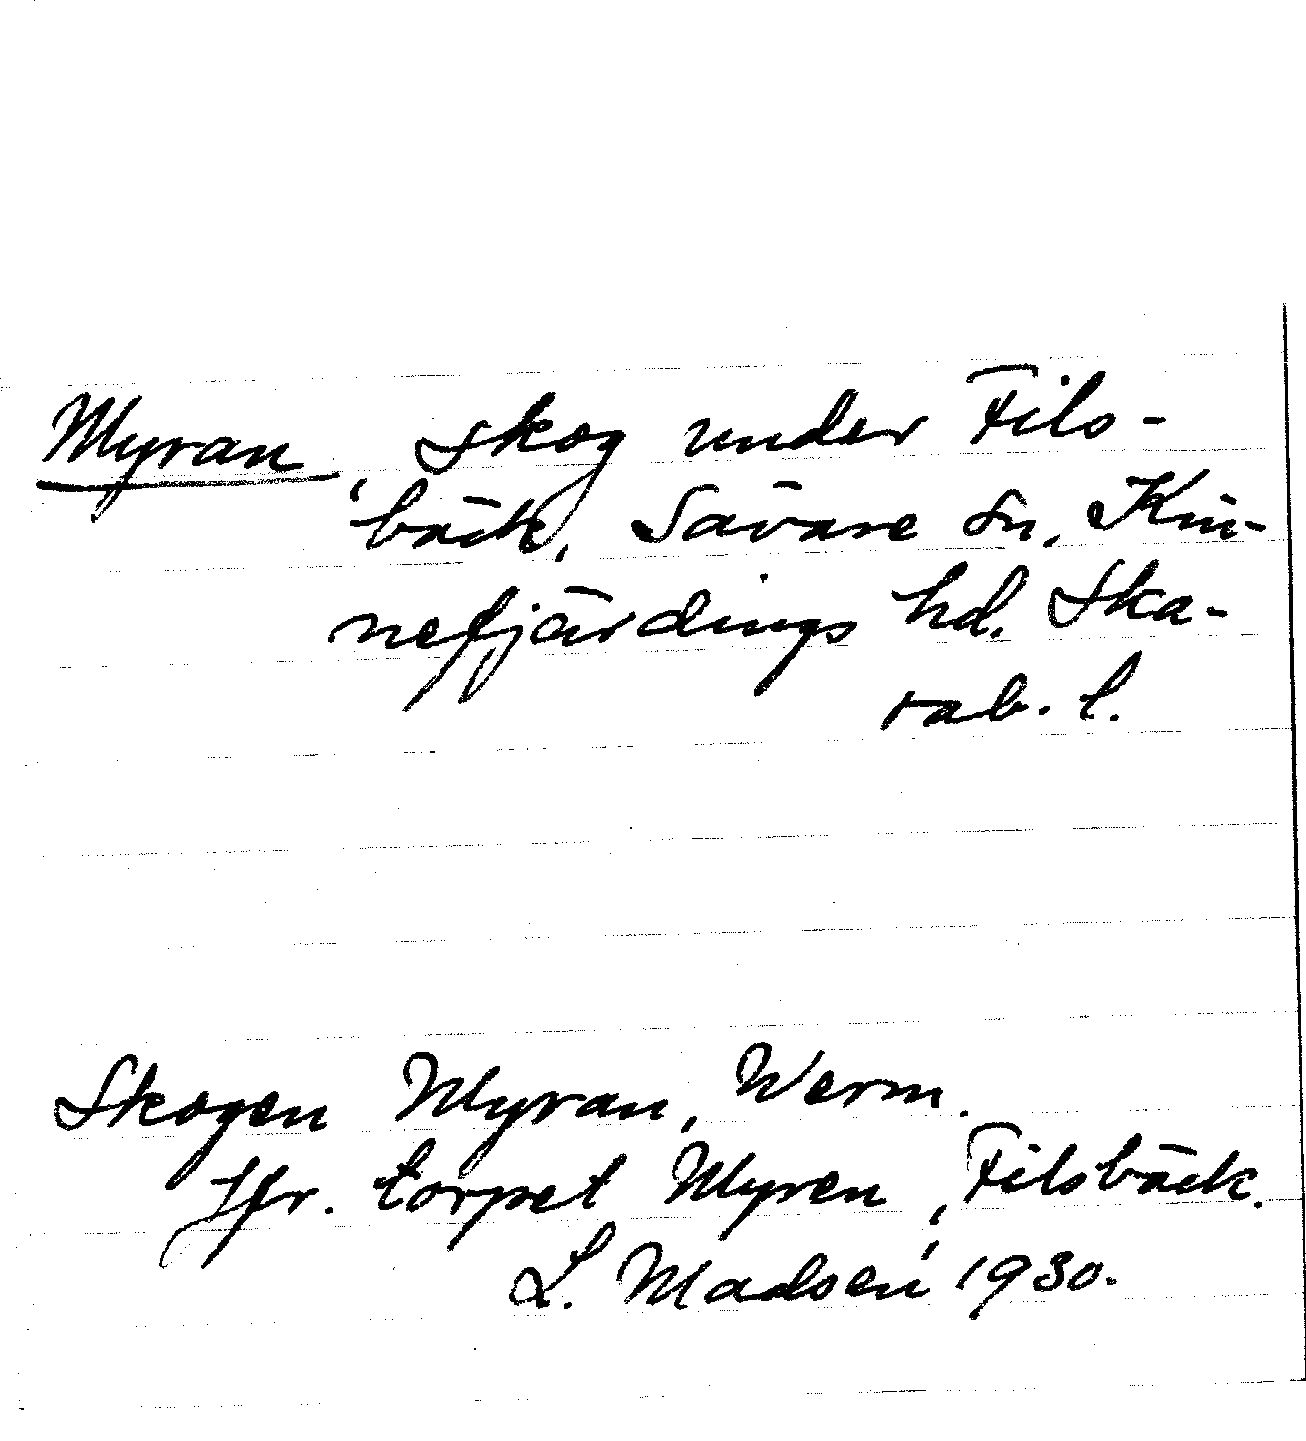 Myran, skog under Fils-
bäck, Sävare sn, Kin-
nefjärdings hd. Ska-
rab. l.
Skogen Myran, Werm.
Jfr. torpet Myren, Filsbäck.
L. Madsen 1930.